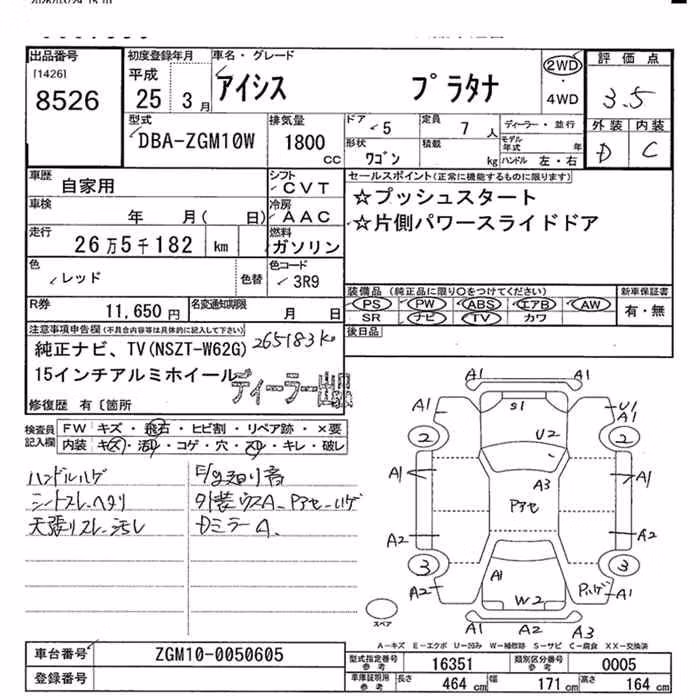 出品番号 初度登録年月 車名・グレード 評価点
[1426] 平成 アイシス プラタナ 2WD
8526 25 3月 ・ 3.5
4WD
外装 内装
型式 排気量 ドア 5 定員 7人 ディーラー・並行 D C
DBA-ZGM10W 1800cc 形状 積載 モデル年式 年
ワゴン kg ハンドル 左・右
車歴 自家用 シフト CVT セールスポイント(正常に機能するものに限ります)
車検 年 月( 日) 冷房 AAC ☆プッシュスタート
走行 26万5千182 km 燃料 ガソリン ☆片側パワースライドドア
色 レッド 色替 色コード 3R9
装備品(純正品に限り○をつけてください) 新車保証書
R券 11,650円 名変通知期限 月 日 PS PW ABS エアB AW 有・無
SR ナビ TV カワ
注意事項申告欄(不具合内容等は具体的に記入して下さい) 後日品
純正ナビ、TV(NSZT-W62G) 265183km
15インチアルミホイール ディーラー出品
修復歴 有〔箇所
検査員記入欄 FW キズ・飛石・ヒビ割・リペア跡・×要
内装 キズ・汚れ・コゲ・穴・スレ・キレ・破レ
ハンドルハゲ
シートスレ、ヘタリ 外装ウスA、Pアセ、ハゲ
天張リスレ、汚レ Dミラー A
A1 A1
A1 S1 U1
A1
2 U2 2
A1 A3 A1
Pアセ
A2 A2
3 3
A2 A1 Pハゲ A1
W2
A2 A2
A2
スペア
A-キズ E-エクボ U-凹み W-補修跡 S-サビ C-腐食 XX-交換済
車台番号 ZGM10-0050605 型式指定番号参考 16351 類別区分番号参考 0005
登録番号 車庫証明用参考 長さ 464cm 幅 171cm 高さ 164cm